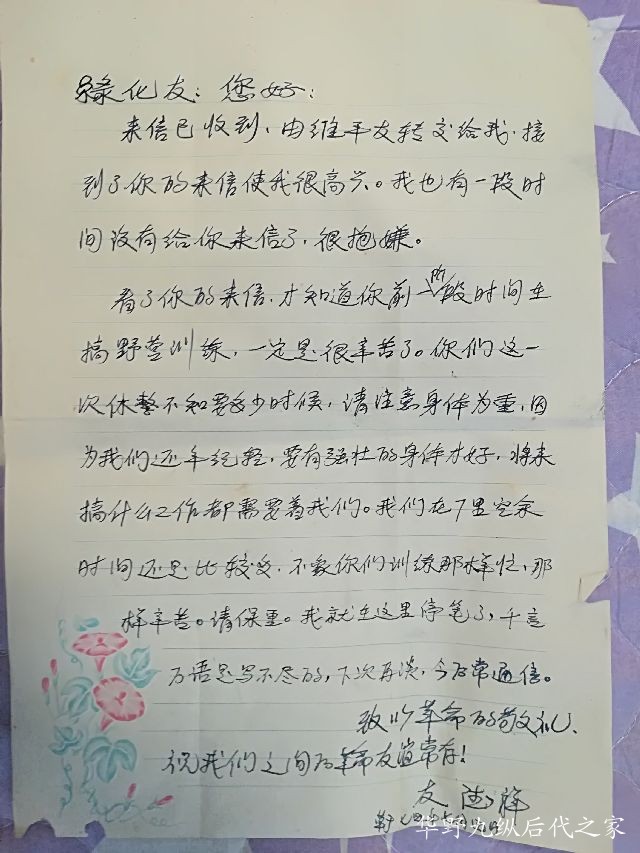 绿化友：您好：
来信已收到，由维平友转交给我，接
到了你的来信使我很高兴。我也有一段时
间没有给你来信了，很抱嫌。
看了你的来信，才知道你前一阶段时间在
搞野营训练，一定是很辛苦了。你们这一
次休整不知要多少时候，请注意身体为重，因
为我们还年纪轻，要有强壮的身体才好，将来
搞什么工作都需要着我们。我们在厂里空余
时间还是比较多，不象你们训练那样忙，那
样辛苦。请保重。我就在这里停笔了，千言
万语是写不尽的，下次再谈，今后常通信。
致以革命的敬礼，
祝我们之间的革命友谊常存！
友
华野九纵后代之家